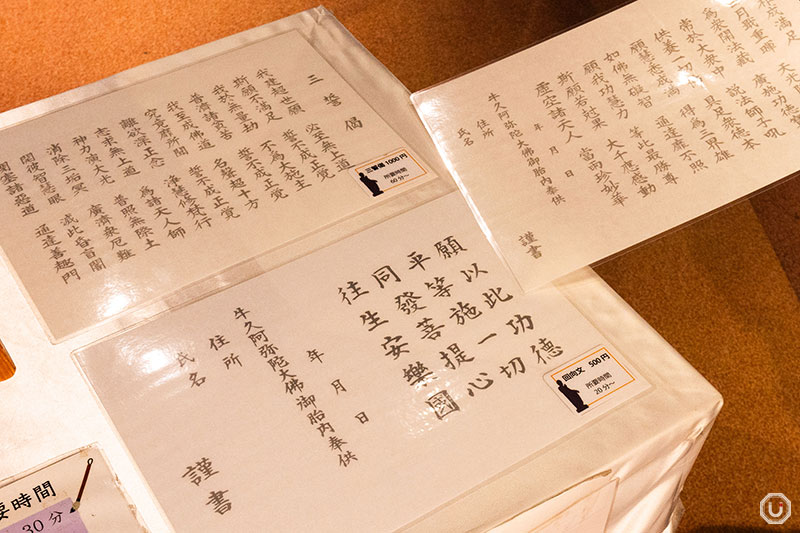 三誓偈
我建超世願 必至無上道
斯願不満足 誓不成正覚
我於無量劫 不為大施主
普濟諸貧苦 誓不成正覚
我至成佛道 名聲超十方
究竟靡所聞 誓不成正覚
離欲深正念 浄慧修梵行
志求無上道 為諸天人師
神力演大光 普照無際土
消除三垢冥 廣濟衆厄難
開彼智慧眼 滅此昏盲闇
閉塞諸惡道 通達善趣門
三誓偈 1000円
所要時間
60分~
祚成満足
月戢重暉
為衆開法蔵 廣施功徳
常於大衆中 説法師子吼
供養一切 具足衆徳本
願慧悉成満 得為三界雄
如佛無礙智 通達靡不照
願我功慧力 等此最勝尊
斯願若剋果 大千應感動
虚空諸天人 當雨珍妙華
年 月 日
牛久阿弥陀大佛御胎内奉供
住所
氏名
謹書
願以此功德
平等施一切
同發菩提心
往生安樂國
年 月 日
牛久阿弥陀大佛御胎内奉供
住所
氏名
謹書
回向文 500円
所要時間
20分~
要時間
30分